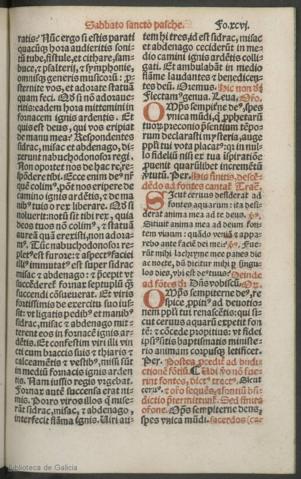 Sabbato sancto pasche.
Fo.xcvj.
ratis? Nūc ergo si estis parati
quacūqz hora audieritis soni-
tū tube, fistule, et cithare, sam-
buce, et psalterij, et symphonie,
omnisqz generis musicorū: p-
sternite vos, et adorate statuā
quam feci. Qd si nō adoraue-
ritis: eadem hora mittemini in
fornacem ignis ardentis. Et
quis est deus, qui vos eripiat
de manu mea? Respondentes
sidrac, misac et abdenago, di-
xerunt nabuchodonosor regi.
Non oportet nos de hac re, re-
spōdere tibi. Ecce enim deꝰ nr̄
quē colimꝰ, pōt nos eripere de
camino ignis ardētis, et de ma-
nibꝰ tuis o rex liberare. Qd si
noluerit: notū sit tibi rex, quia
deos tuos nō colimꝰ, et statuā
aureā quā erexisti, non adora-
mꝰ. Tūc nabuchodonosor re-
pletꝰ est furore: et aspectꝰ faciei
illiꝰ immutatꝰ est super sidrac
misac et abdenago: et p̄cepit vt
succēderet fornax septuplū qz
succendi cōsueuerat. Et viris
fortissimis de exercitu suo ius-
sit: vt ligatis pedibꝰ et manibꝰ
sidrac, misac et abdenago mit-
terent eos in fornacē ignis ar-
dētis. Et confestim viri illi vin-
cti cum braccis suis et thiaris et
calceamētis et vestibꝰ, missi sūt
in mediū fornacis ignis arden-
tis. Nam iussio regis vrgebat.
Fornax autē succensa erat ni-
mis. Porro viros illos q mise-
rāt sidrac, misac, et abdenago,
interfecit flāma ignis. Uiri au-
tem hi tres, id est sidrac, misac
et abdenago ceciderūt in me-
dio camini ignis ardētis colli-
gati. Et ambulabāt in medio
flāme laudantes et benedicen-
tes deū. Oremus. Hic non dr̄
Flectamꝰ genua. Leua. Oro.
OMps sempiterne deꝰ,
spes vnica mūdi, q prophetarū
tuorū preconio presentium tēpo-
rum declarasti mysteria, auge
ppl̄i tui vota placatꝰ: qz in nul-
lo fideliū nisi ex tua inspiratiōe
pueniūt quarūlibet incremēta
vtutū. Per. His finitis, descē-
dēdo ad fontes cantāt. Tract.
SIcut ceruus desiderat ad
fontes aquarum: ita desi-
derat anima mea ad te deus. v̄.
Sitiuit anima mea ad deum fon-
tem viuum: quādo veniā et appa-
rebo ante faciē dei mei? v̄. Fue-
rūt mihi lachryme mee panes die
ac nocte, dū dicitur mihi p singu-
los dies, vbi est deꝰ tuus? Deinde
ad fōtes.
OMps sempiterne deꝰ, re-
spice ppitiꝰ ad deuotio-
nem ppl̄i tui renascētis: qui si-
cut ceruus aquarū expetit fon-
tē: cōcede propitius: vt fidei
ipsiꝰ sitis baptismatis mysterio
aīam corpusqz sctificet.
Per.
OMps sempiterne deus,
spes vnica mūdi.
Biblioteca de Galicia